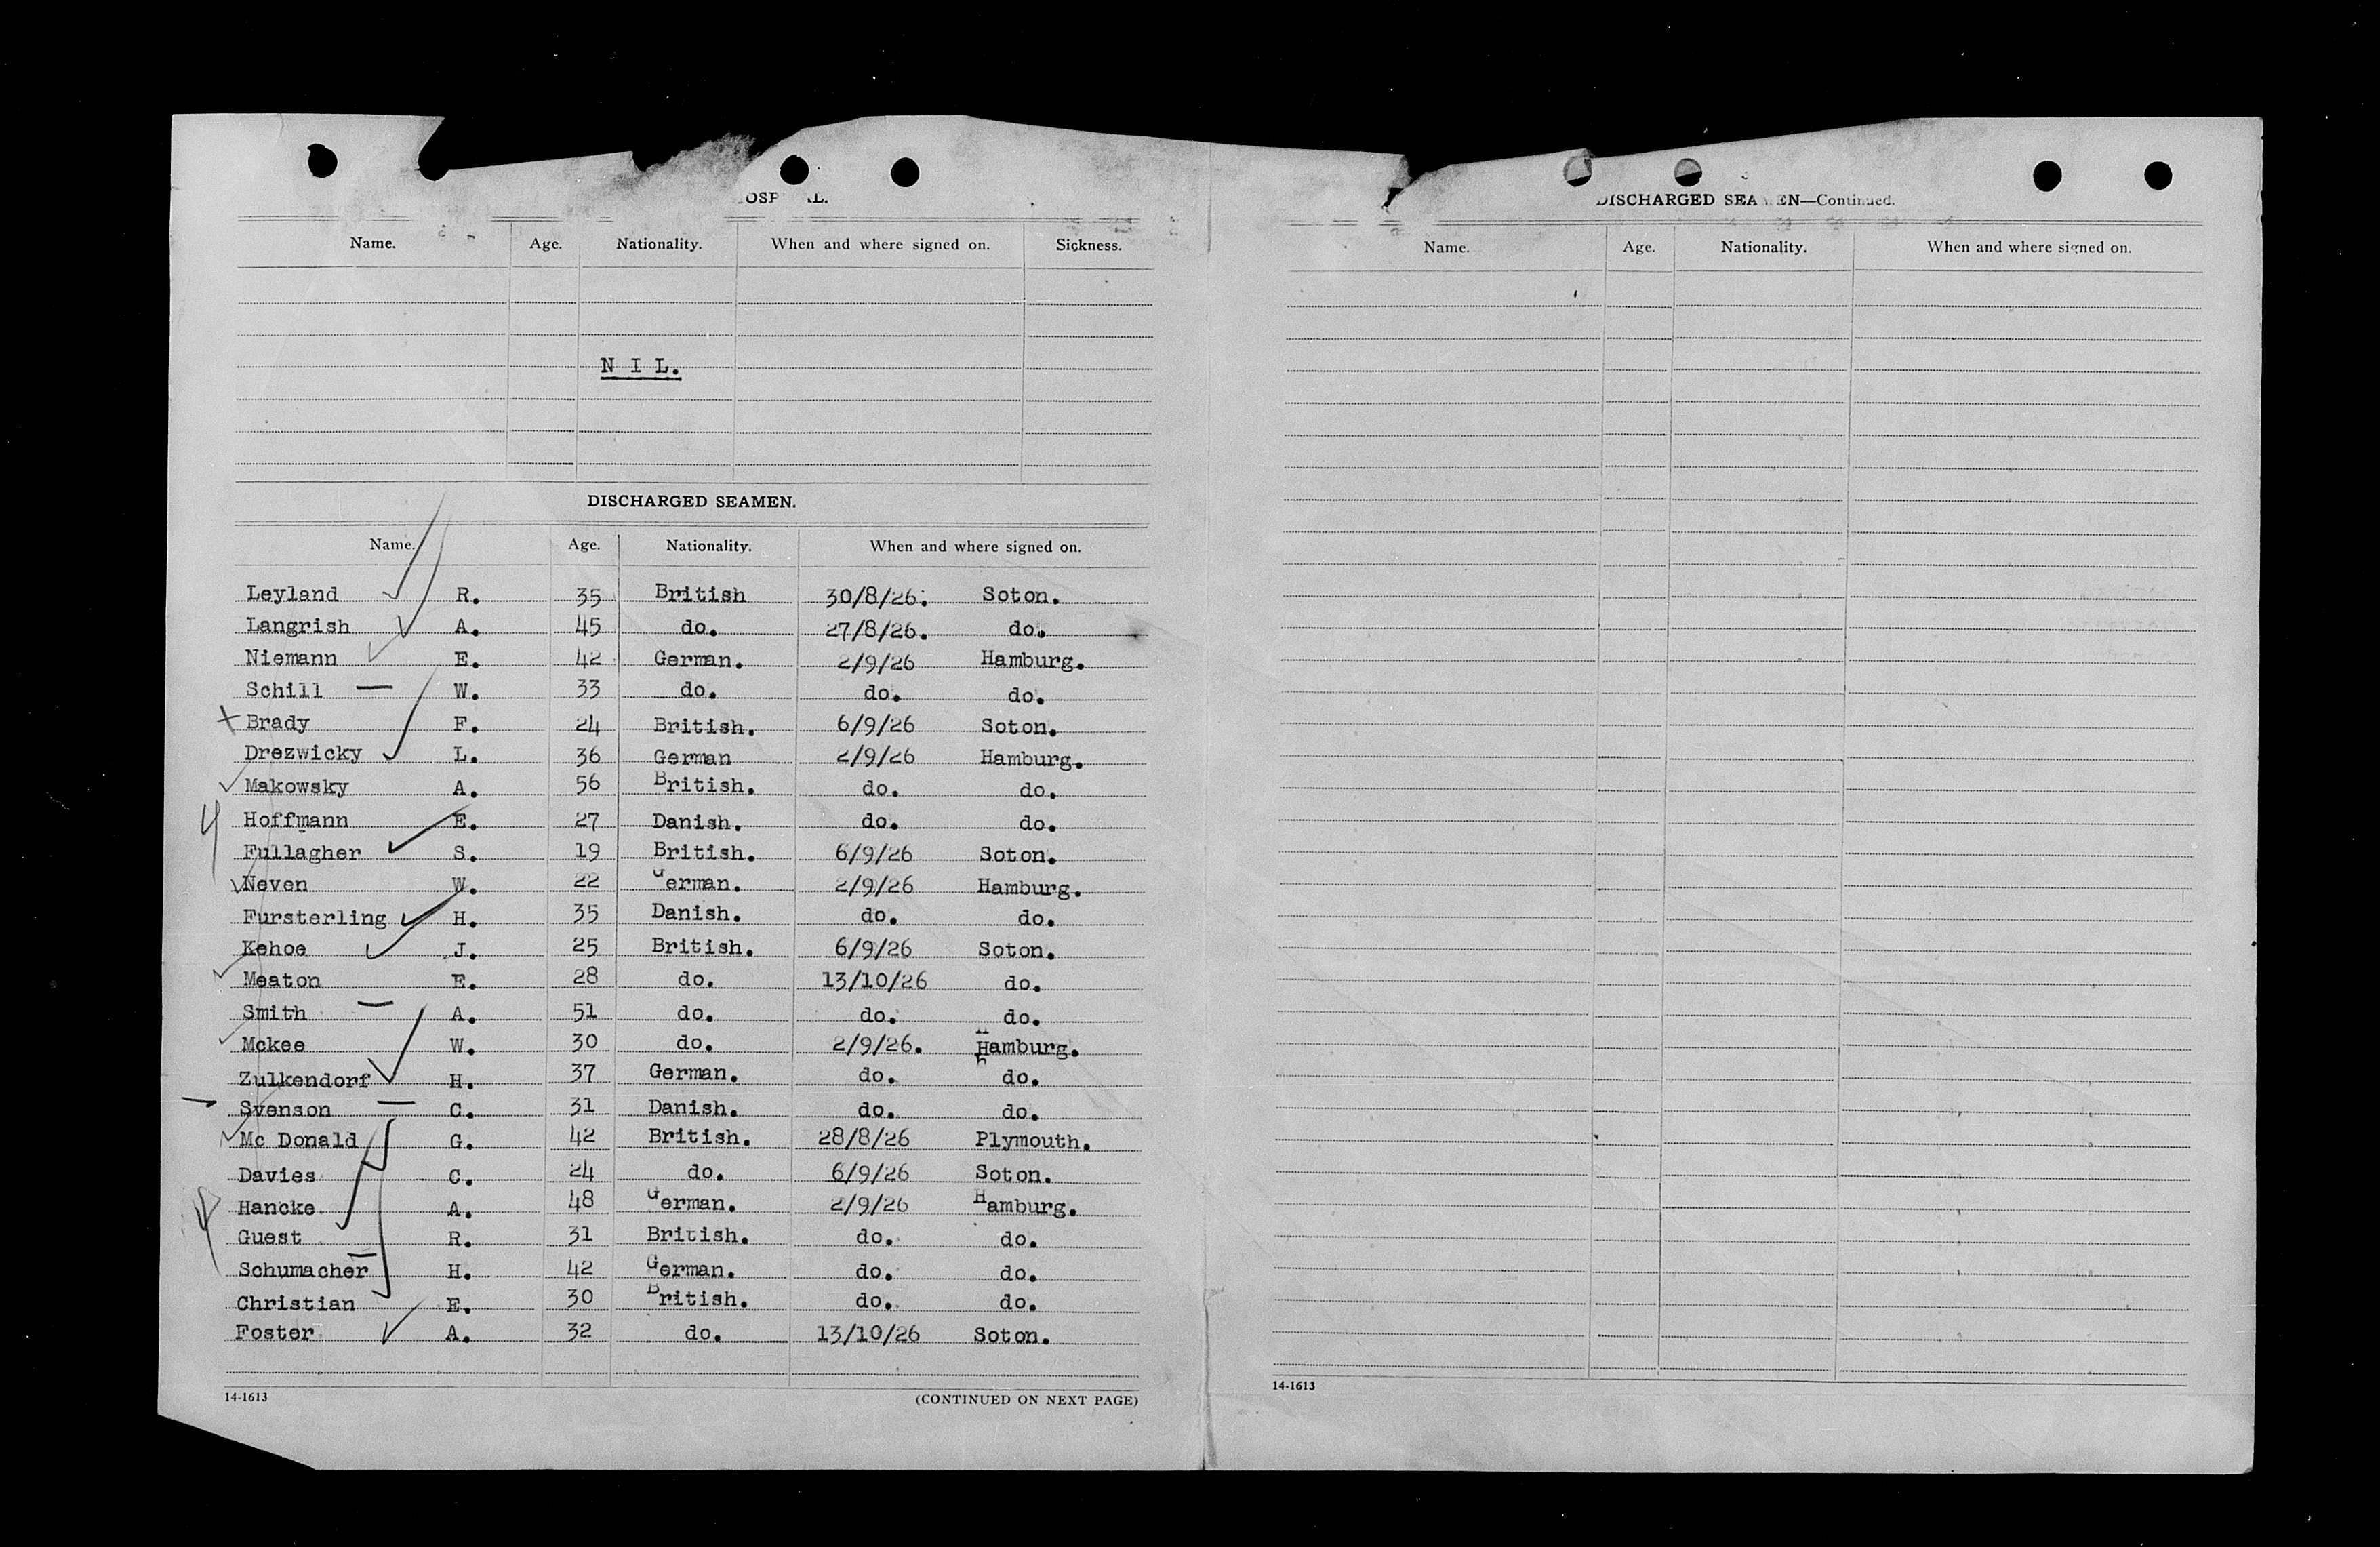 Name. Age. Nationality. When and where signed on. Sickness.
N I L.
DISCHARGED SEAMEN.
Name. Age. Nationality. When and where signed on.
Leyland R. 35 British 30/8/26. Soton.
Langrish A. 45 do. 27/8/26. do.
Niemann E. 42 German. 2/9/26 Hamburg.
Schill W. 33 do. do. do.
Brady F. 24 British. 6/9/26 Soton.
Drezwicky L. 36 German 2/9/26 Hamburg.
Makowsky A. 56 British. do. do.
Hoffmann E. 27 Danish. do. do.
Fullagher S. 19 British. 6/9/26 Soton.
Neven W. 22 German. 2/9/26 Hamburg.
Fursterling H. 35 Danish. do. do.
Kehoe J. 25 British. 6/9/26 Soton.
Meaton E. 28 do. 13/10/26 do.
Smith A. 51 do. do. do.
Mckee W. 30 do. 2/9/26. Hamburg.
Zulkendorf H. 37 German. do. do.
Svenson C. 31 Danish. do. do.
Mc Donald G. 42 British. 28/8/26 Plymouth.
Davies C. 24 do. 6/9/26 Soton.
Hancke A. 48 German. 2/9/26 Hamburg.
Guest R. 31 British. do. do.
Schumacher H. 42 German. do. do.
Christian E. 30 British. do. do.
Foster A. 32 do. 13/10/26 Soton.
14-1613 (CONTINUED ON NEXT PAGE)
DISCHARGED SEAMEN—Continued.
Name. Age. Nationality. When and where signed on.
14-1613